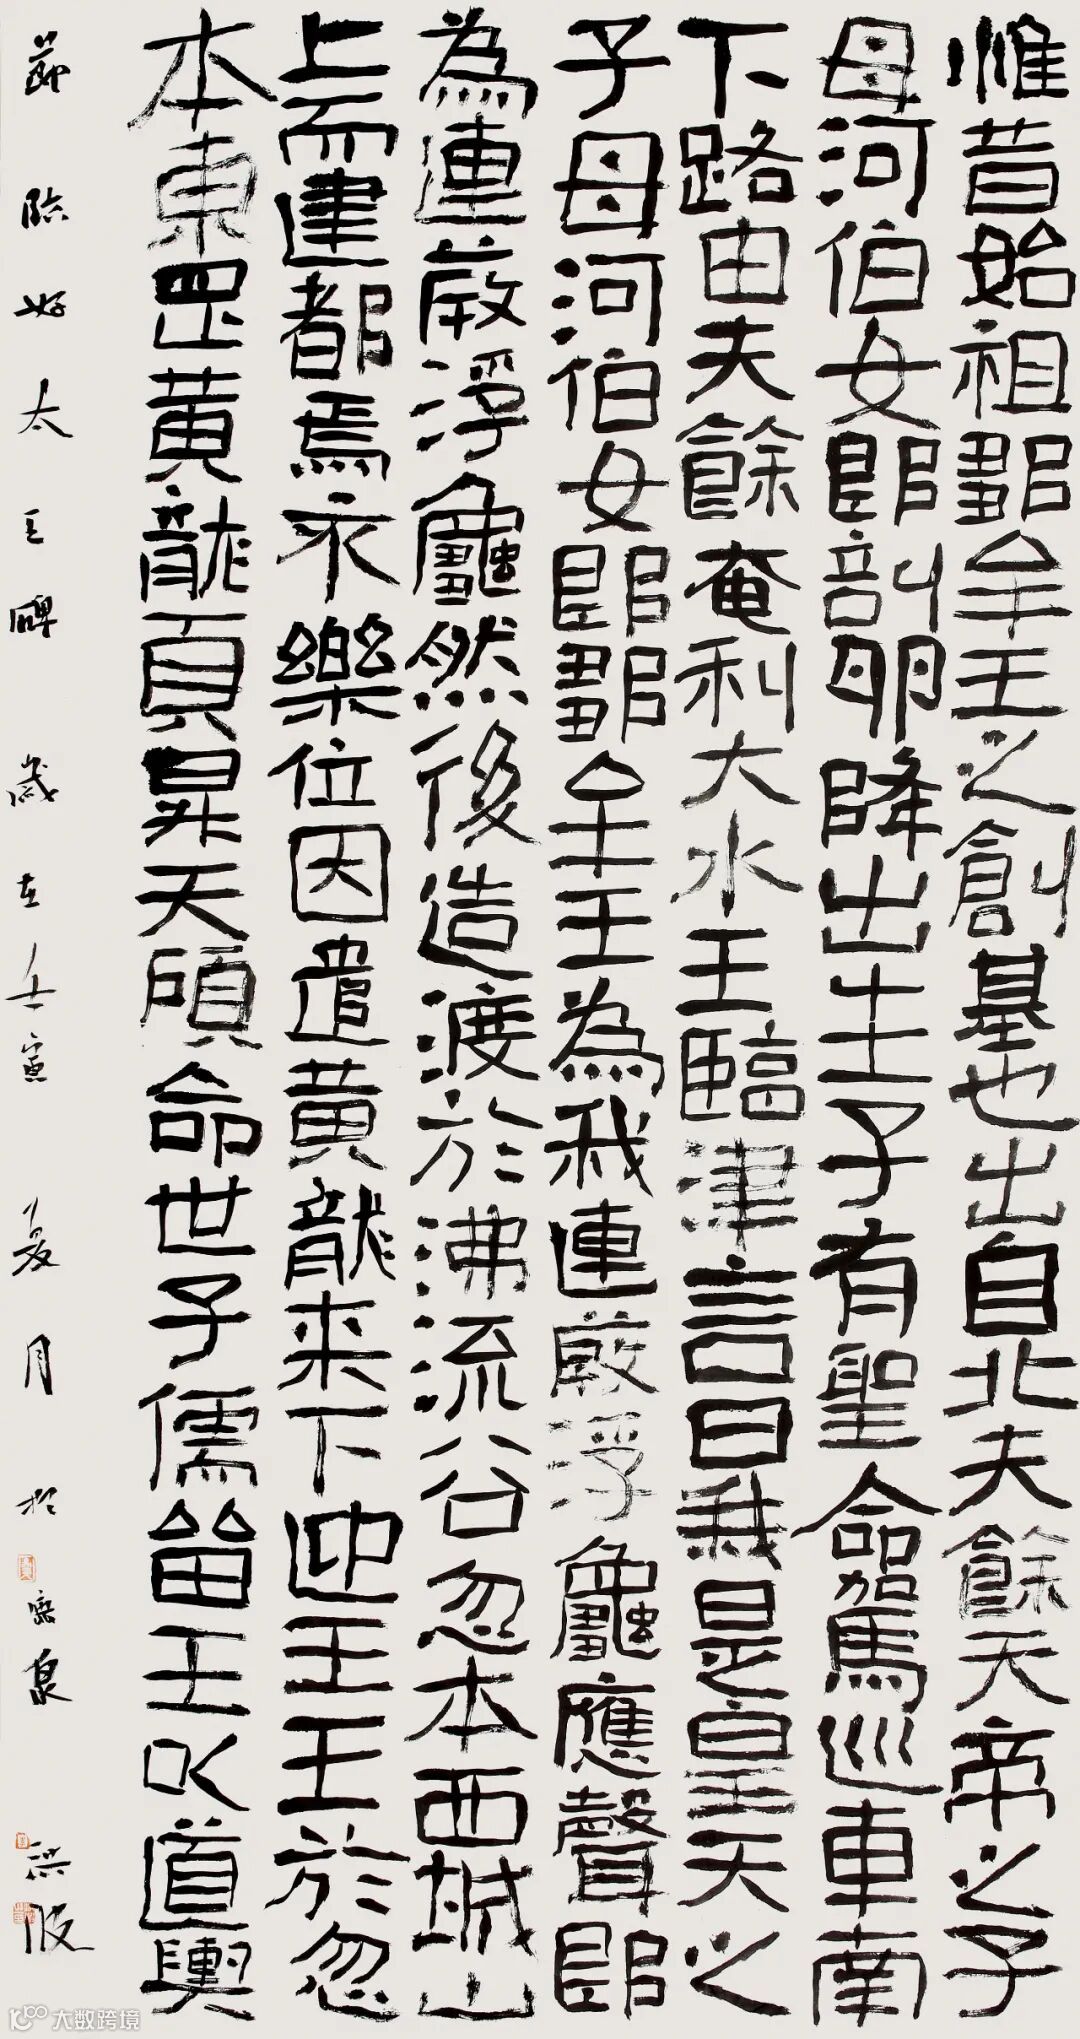 惟昔始祖鄒牟王之創基也出自北夫餘天帝之子
母河伯女郎剖卵降出生子有聖命駕巡車南
下路由夫餘奄利大水王臨津言曰我是皇天之
子母河伯女郎鄒牟王為我連葭浮龜應聲即
為連葭浮龜然後造渡於沸流谷忽本西城山
上而建都焉永樂位因遣黃龍来下迎王王於忽
本東罡黃龍頁昇天顧命世子儒留王以道輿
節臨好太王碑歲在壬寅夏月於
大数跨境